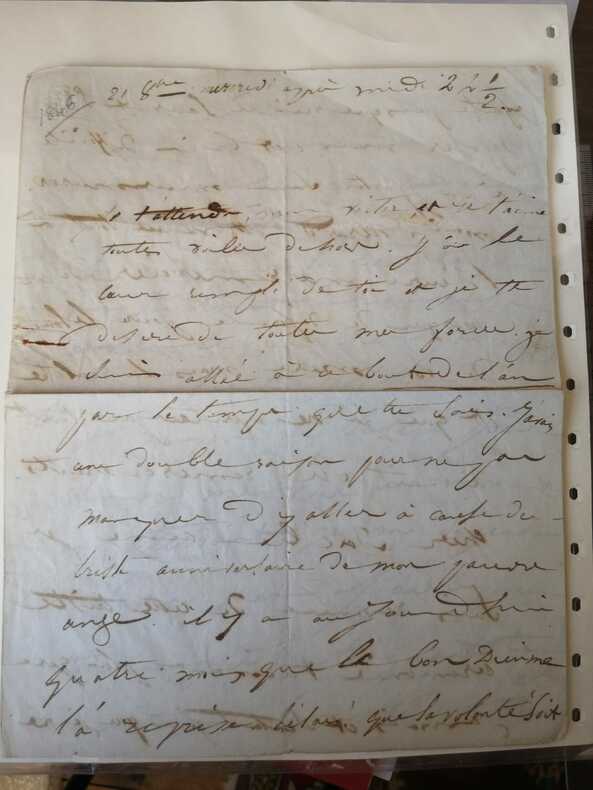 21 8bre mercredi après midi 2 h ½
Je t'attends, mon Victor, et je t'aime
toutes voiles dehors. J'ai le
cœur rempli de toi et je te
désire de toutes mes forces. Je
suis allée à ce bout de l'an
par le temps que tu sais. J'avais
une double raison pour ne pas
manquer d'y aller à cause du
triste anniversaire de mon pauvre
ange. Il y a aujourd'hui
quatre mois que le bon Dieu me
l'a reprise hélas! que sa volonté soit